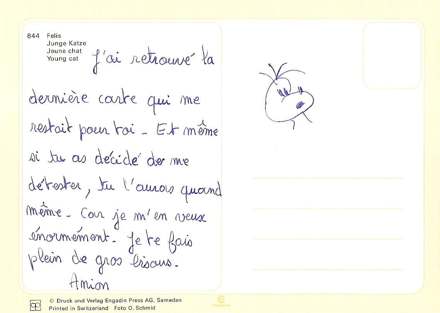 844 Felis
Junge Katze
Jeune chat
Young cat
J'ai retrouvé ta
dernière carte qui me
restait pour toi - Et même
si tu as décidé de me
détester, tu l'auras quand
même. Car je m'en veux
énormément. Je te fais
plein de gros bisous.
Anion
© Druck und Verlag Engadin Press AG, Samedan
Printed in Switzerland Foto O. Schmid